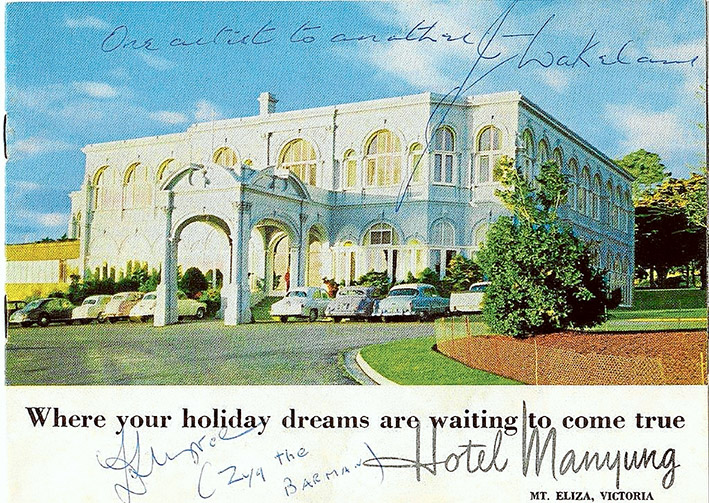 One artist to another
Where your holiday dreams are waiting to come true
(Zyg the
BARMAN)
Hotel Manyung
MT. ELIZA, VICTORIA